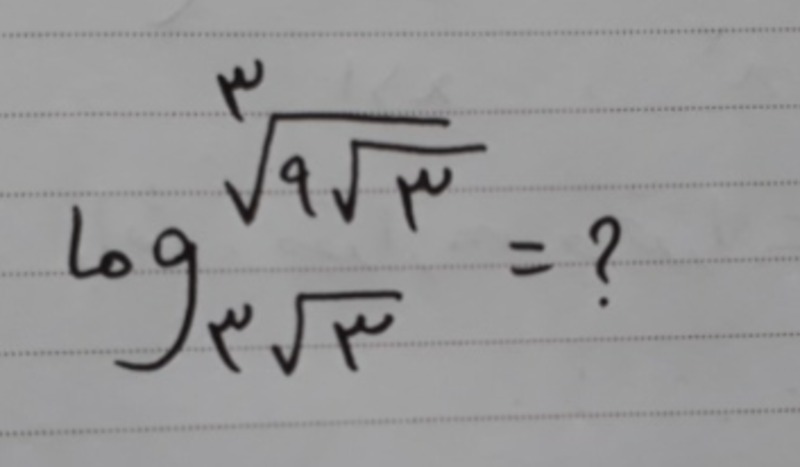 Log_{۳√۳} ∛(۹√۳) = ?